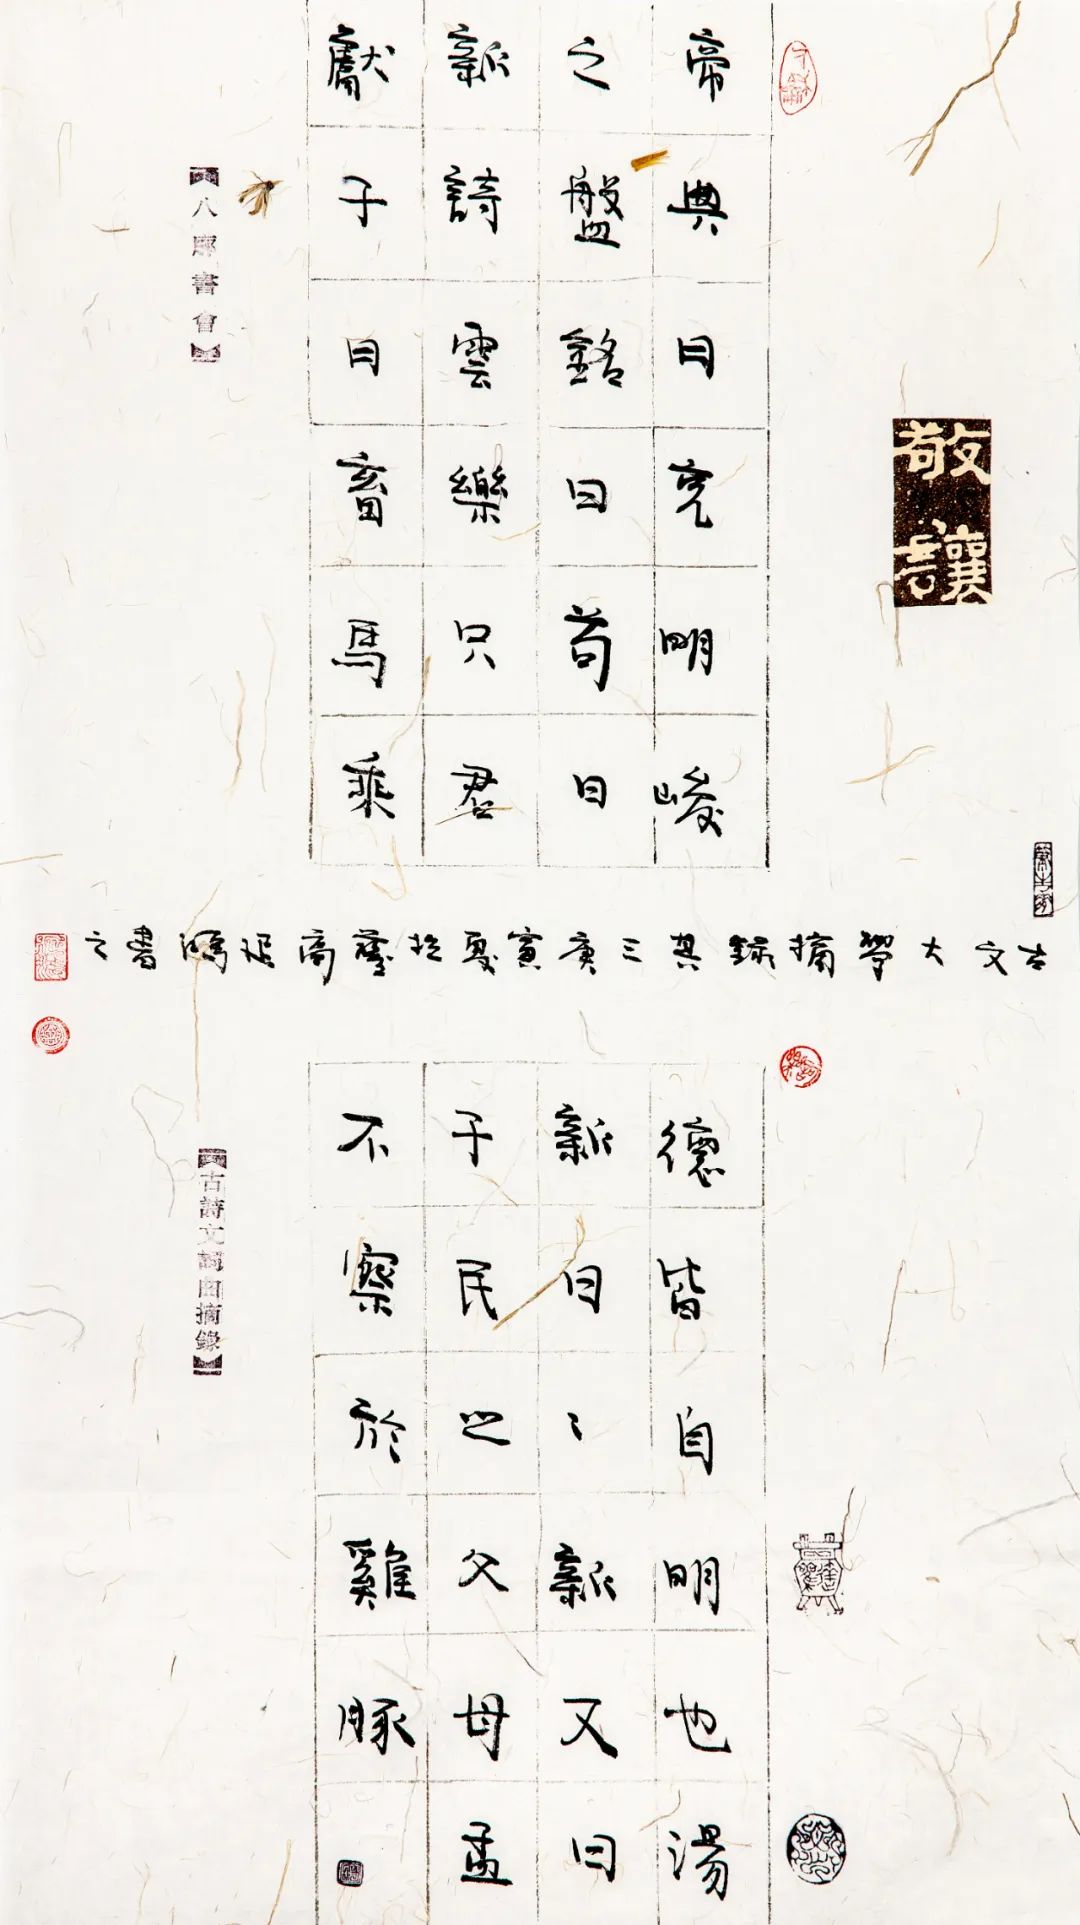 敬讓
帝典曰克明峻
之盤銘曰苟日
新詩雲樂只君
獻子曰畜馬乘
【八 書會】
古文大學摘錄其三庚寅夏於藝高居 書之
德皆自明也湯
新日〻新又曰
子民之父母孟
不察於雞豚
【古詩文詞曲摘錄】